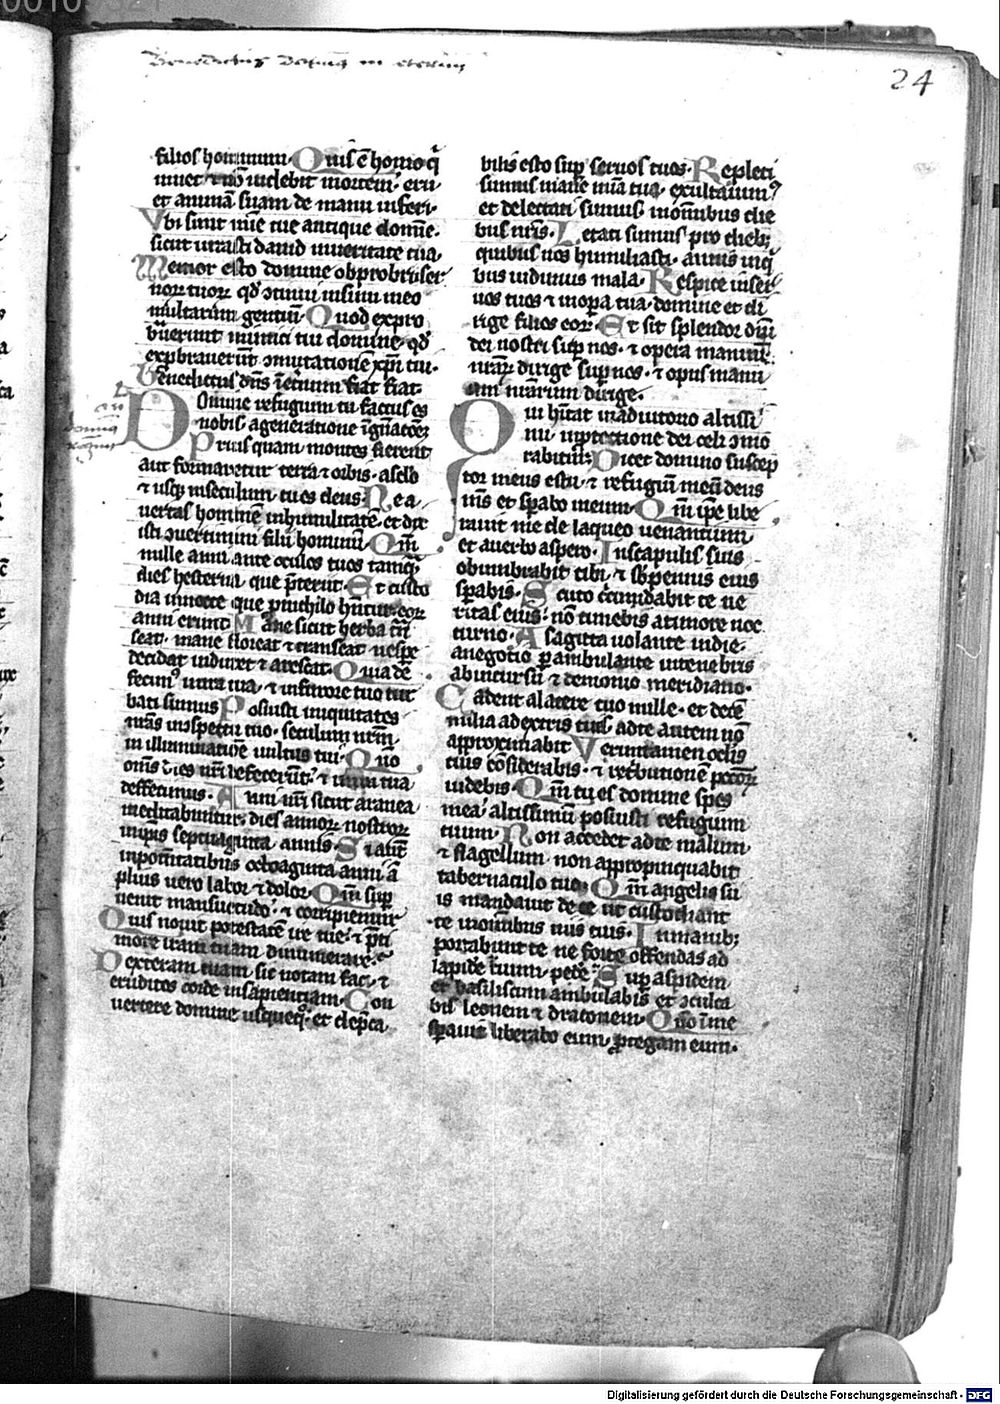 Benedictus dominus in eternum
24
filios hominum. Quis ē homo qͥ
uiuet ⁊ nō uidebit mortem. eru
et animā suam de manu inferi.
Vbi sunt mīe tue antique domīe.
sicut iurasti dauid in ueritate tua.
Memor esto domine obprobrii ser
uoꝝ tuoꝝ qd̄ ↄtinui in sinu meo
multarum gentiū. Quod expro
bͣuerunt inimici tui domine. qd̄
exp̄brauerūt ↄmutationē xp̄i tui.
Benedictus dn̄s ī et̄num fiat fiat.
Domine refugium tu factus es
nobis. a generatione ī gn̄acōeꝫ
Prius quam montes fierent
aut formaretur terra ⁊ orbis. a sclo
⁊ usqꝫ in seculum tu es deus. Ne a
uertas hominē in humilitatē. et dix
isti ↄuertimini filii hominū. Qm̄
mille anni ante oculos tuos tamqͣ
dies hesterna que p̄terut. Et custo
dia in nocte que p̄ nichilo hn̄tur eoꝝ
anni erunt Mane sicut herba trā
seat. mane floreat ⁊ transeat uesꝑe
decidat induret ⁊ arescat. Quia de
fecimꝰ in ira tua. ⁊ in furore tuo tur
bati sumus Posuisti iniquitates
nrās in spectu tuo. seculum nrm̄
in illuminatiōe uultus tui. Qm̄o
om̄s dies nrī defecerūt. ⁊ in ira tua
deffecimus. Anni nrī sicut aranea
meditabuntur. dies annoꝝ nostroꝝ
in ip̄is septuaginta annis. Si autē
in potn̄tatibus octoaginta anni ⁊ ā
plius uero labor ⁊ dolor. Qm̄ suꝑ
uenit mansuetudo. ⁊ corripiemur
Quis nouit potestatē ire tue. ⁊ p̄ ti
more iram tuam dinumerare.
Dexteram tuam sic notam fac. ⁊
eruditos corde in sapientiam. Con
uertere domine usquequo. et dep̄ca
bilis esto suꝑ seruos tuos. Repleti
sumus mane mīa tua. exultauimꝰ
et delectati sumus. in om̄ibus die
bus nrīs. Letati sumus pro diebꝫ
quibus nos humiliasti. annis in qͥ
bus uidimus mala. Respice in ser
uos tuos ⁊ in oꝑa tua. domine et di
rige filios eoꝝ. Et sit splendor dn̄i
dei nostri suꝑ nos. ⁊ opera manuū
nrāꝝ dirige suꝑ nos. ⁊ opus manu
um nrārum dirige.
Qui hītat in adiutorio altissi
mi. in ꝓtectione dei celi ↄmo
rabitur. Dicet domino suscep
tor meus es tu. ⁊ refugiū meū deus
mīs et sꝑabo in eum. Qm̄ ip̄e libe
rauit me de laqueo uenantium
et a uerbo aspero. In scapulis suis
obumbrabit tibi. ⁊ sb̄ pennis eius
sꝑabis. Scuto circūdabit te ue
ritas eius. nō timebis a timore noc
turno. A sagitta uolante in die.
a negotio ꝑambulante in tenebris
ab incursū ⁊ demonio meridiano.
Cadent a latere tuo mille. et decē
milia a dextris tuis. ad te autem nō
approximabit Verumtamen oclis
tuis cōsiderabis. ⁊ ret̄butionē pccōꝝ
uidebis. Qm̄ tu es domine spes
mea. altissimū posuisti refugium
tuum. Non accedet ad te malum
⁊ flagellum non appropinquabit
tabernaculo tuo. Qm̄ angelis su
is mandauit de te ut custodiant
te in om̄ibus uiis tuis. In manibꝫ
portabunt te ne forte offendas ad
lapidē tuum pedē. Suꝑ aspidem
et basiliscum ambulabis et ↄculca
bis leonem ⁊ draconem. Qm̄o ī me
sꝑauit liberabo eum. ꝓtegam eum.
Digitalisierung gefördert durch die Deutsche Forschungsgemeinschaft - DFG